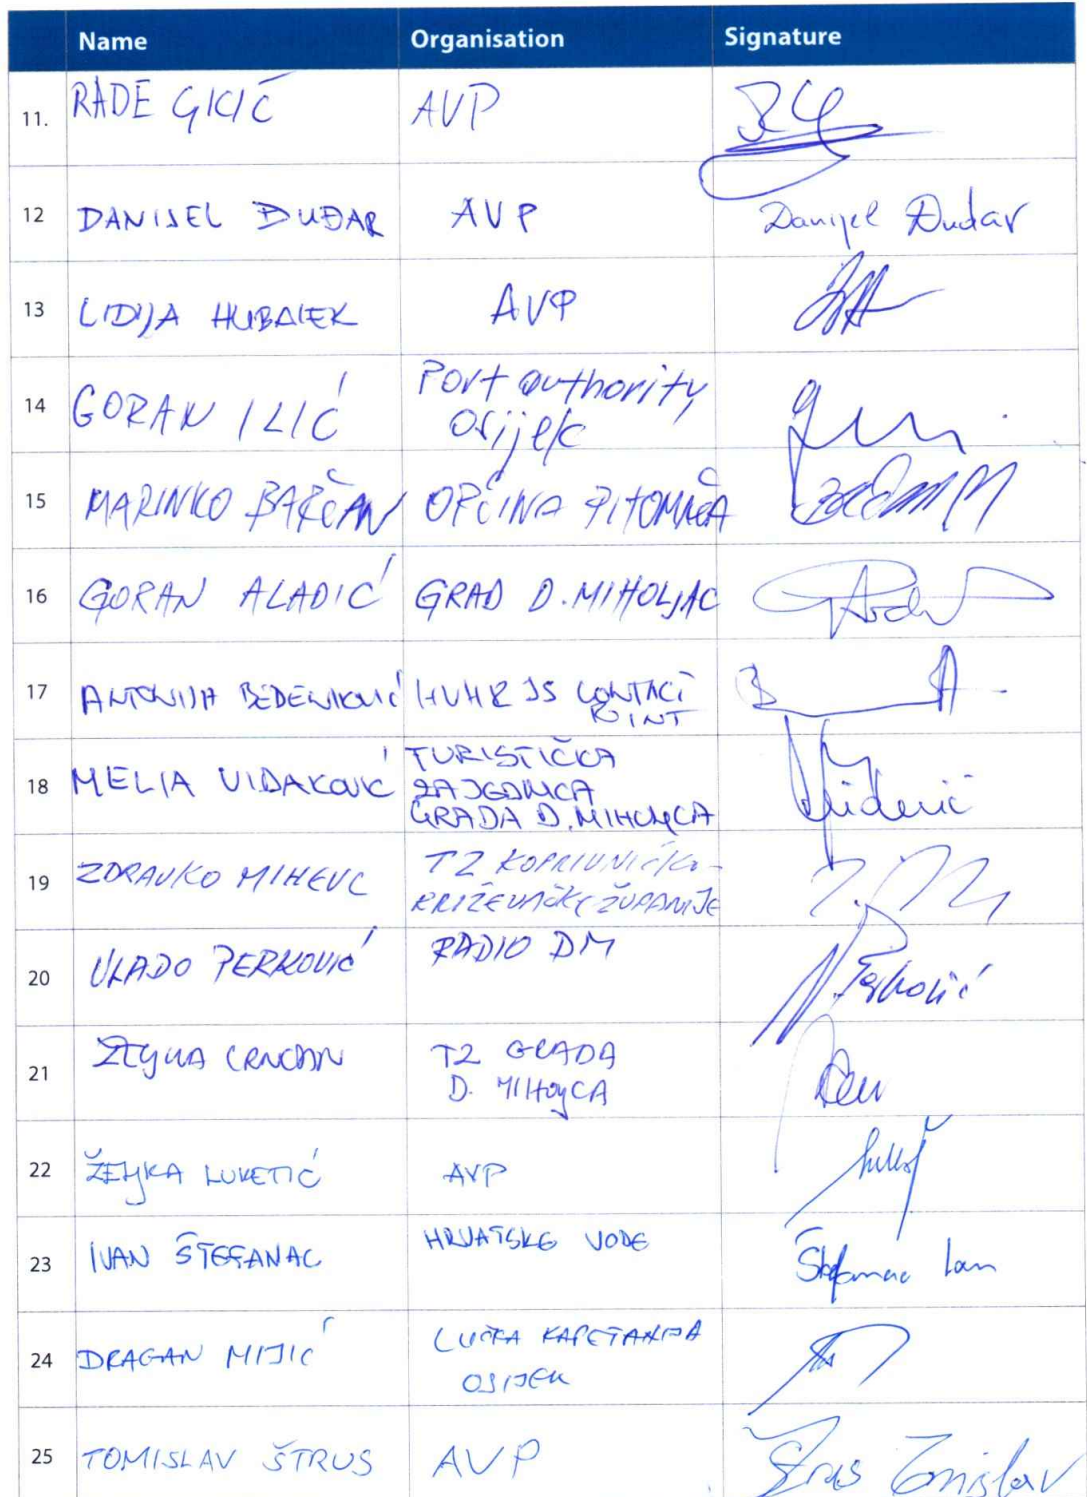 Name Organisation Signature
11. RADE GICIĆ AVP
12 DANIJEL ĐUĐAR AVP Danijel Đudar
13 LIDIJA HUBALEK AVP
14 GORAN ILIĆ Port authority
Osijek
15 MARINKO BARČAN OPĆINA PITOMAČA
16 GORAN ALADIĆ GRAD D. MIHOLJAC
17 ANTONIJA BEDENIKOVIĆ HUHR JS CONTACT
POINT
18 MELIA VIDAKOVIĆ TURISTIČKA
ZAJEDNICA
GRADA D. MIHOLJCA
19 ZDRAVKO MIHEVC TZ KOPRIVNIČKO-
KRIŽEVAČKE ŽUPANIJE
20 VLADO PERKOVIĆ RADIO DM V. Perković
21 CRNČAN TZ GRADA
D. MIHOLJCA
22 ŽELJKA LUKETIĆ AVP
23 IVAN ŠTEFANAC HRVATSKE VODE Štefanac Ivan
24 DRAGAN MIJIĆ LUČKA KAPETANIJA
OSIJEK
25 TOMISLAV ŠTRUS AVP Štrus Tomislav